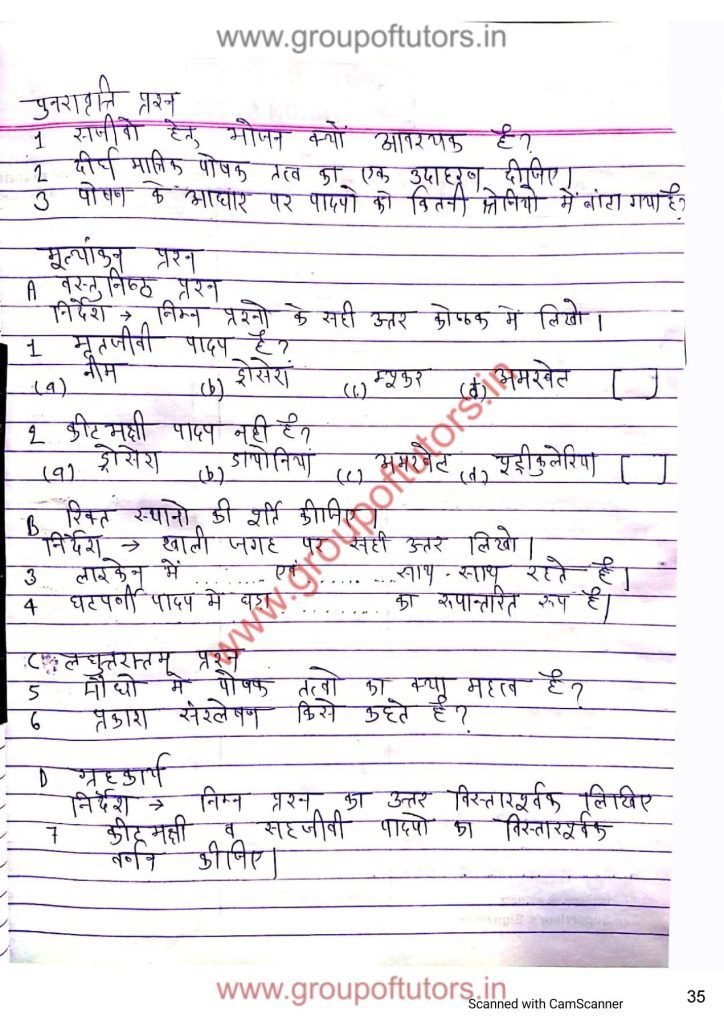 www.groupoftutors.in
पुनरावृत्ति प्रश्न
1 सजीवो हेतु भोजन क्यों आवश्यक है?
2 दीर्घ मात्रिक पोषक तत्व का एक उदाहरण दीजिए।
3 पोषण के आधार पर पादपो को कितनी श्रेनियो में बांटा गया है?
मूल्यांकन प्रश्न
A वस्तुनिष्ठ प्रश्न
निर्देश → निम्न प्रश्नो के सही उत्तर कोष्ठक में लिखो।
1 मृतजीवी पादप है?
(a) नीम (b) ड्रोसेरा (c) म्यूकर (d) अमरबेल [ ]
2 कीटभक्षी पादप नही है?
(a) ड्रोसेरा (b) डायोनिया (c) अमरबेल (d) यूट्रीकुलेरिया [ ]
B रिक्त स्थानो की पूर्ति कीजिए।
निर्देश → खाली जगह पर सही उत्तर लिखो।
3 लाइकेन में ......... एव ......... साथ-साथ रहते है।
4 घटपर्णी पादप में घड़ा ......... का रूपान्तरित रूप है।
C लघुत्तरात्मू प्रश्न
5 पौधो मे पोषक तत्वो का क्या महत्व है?
6 प्रकाश संश्लेषण किसे कहते है?
D ग्रहकार्य
निर्देश → निम्न प्रश्न का उत्तर विस्तारपूर्वक लिखिए
7 कीटभक्षी व सहजीवी पादपो का विस्तारपूर्वक
वर्णन कीजिए।
www.groupoftutors.in
www.groupoftutors.in
Scanned with CamScanner
35